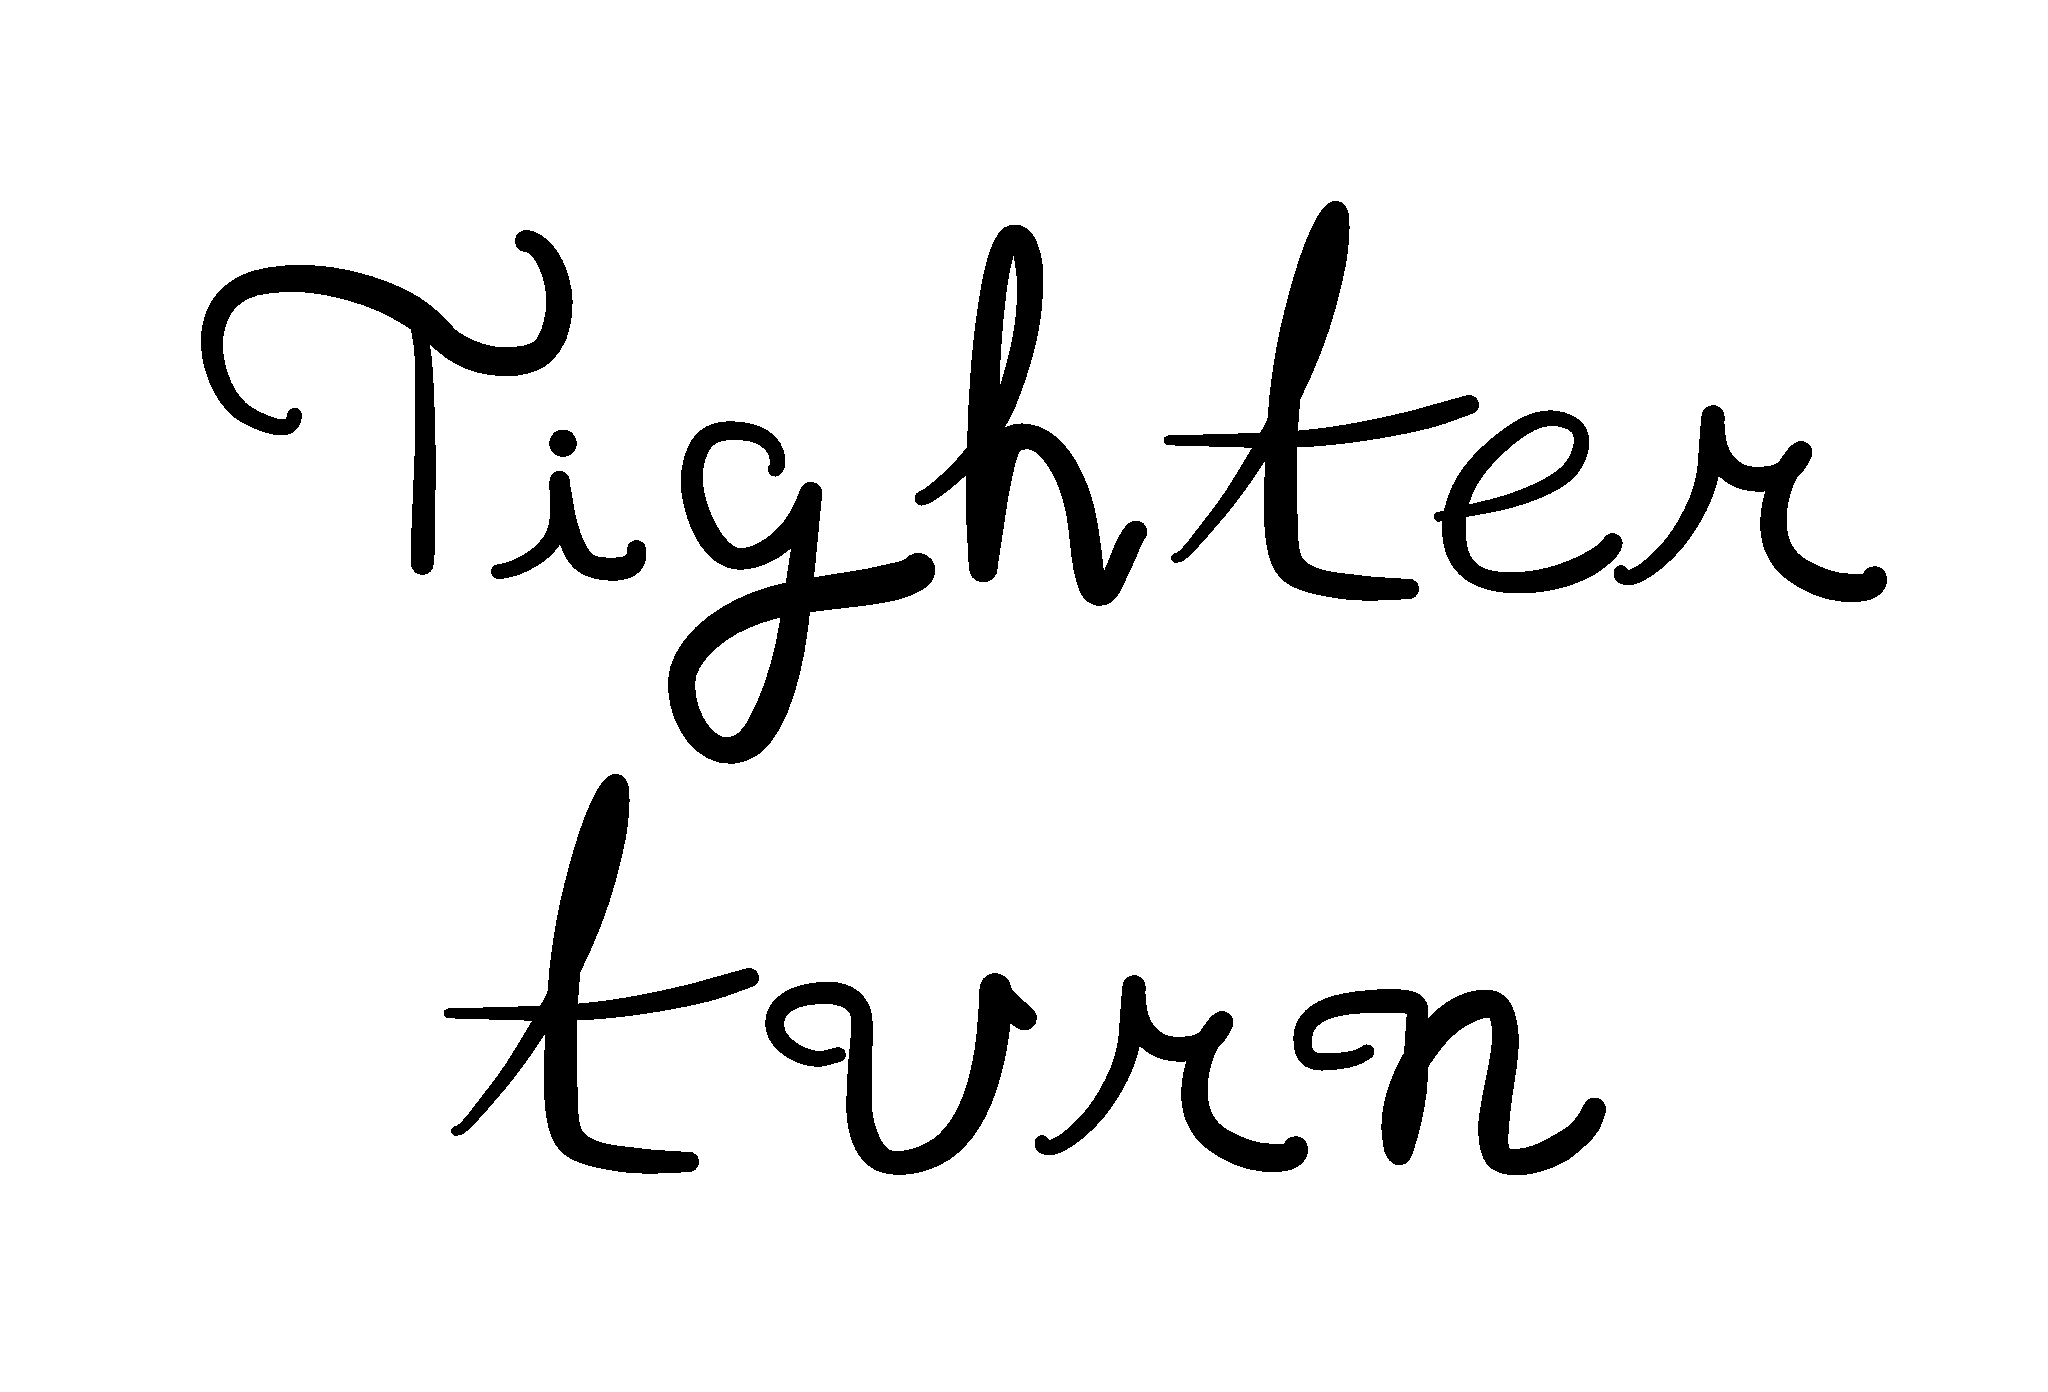 Tighter
turn